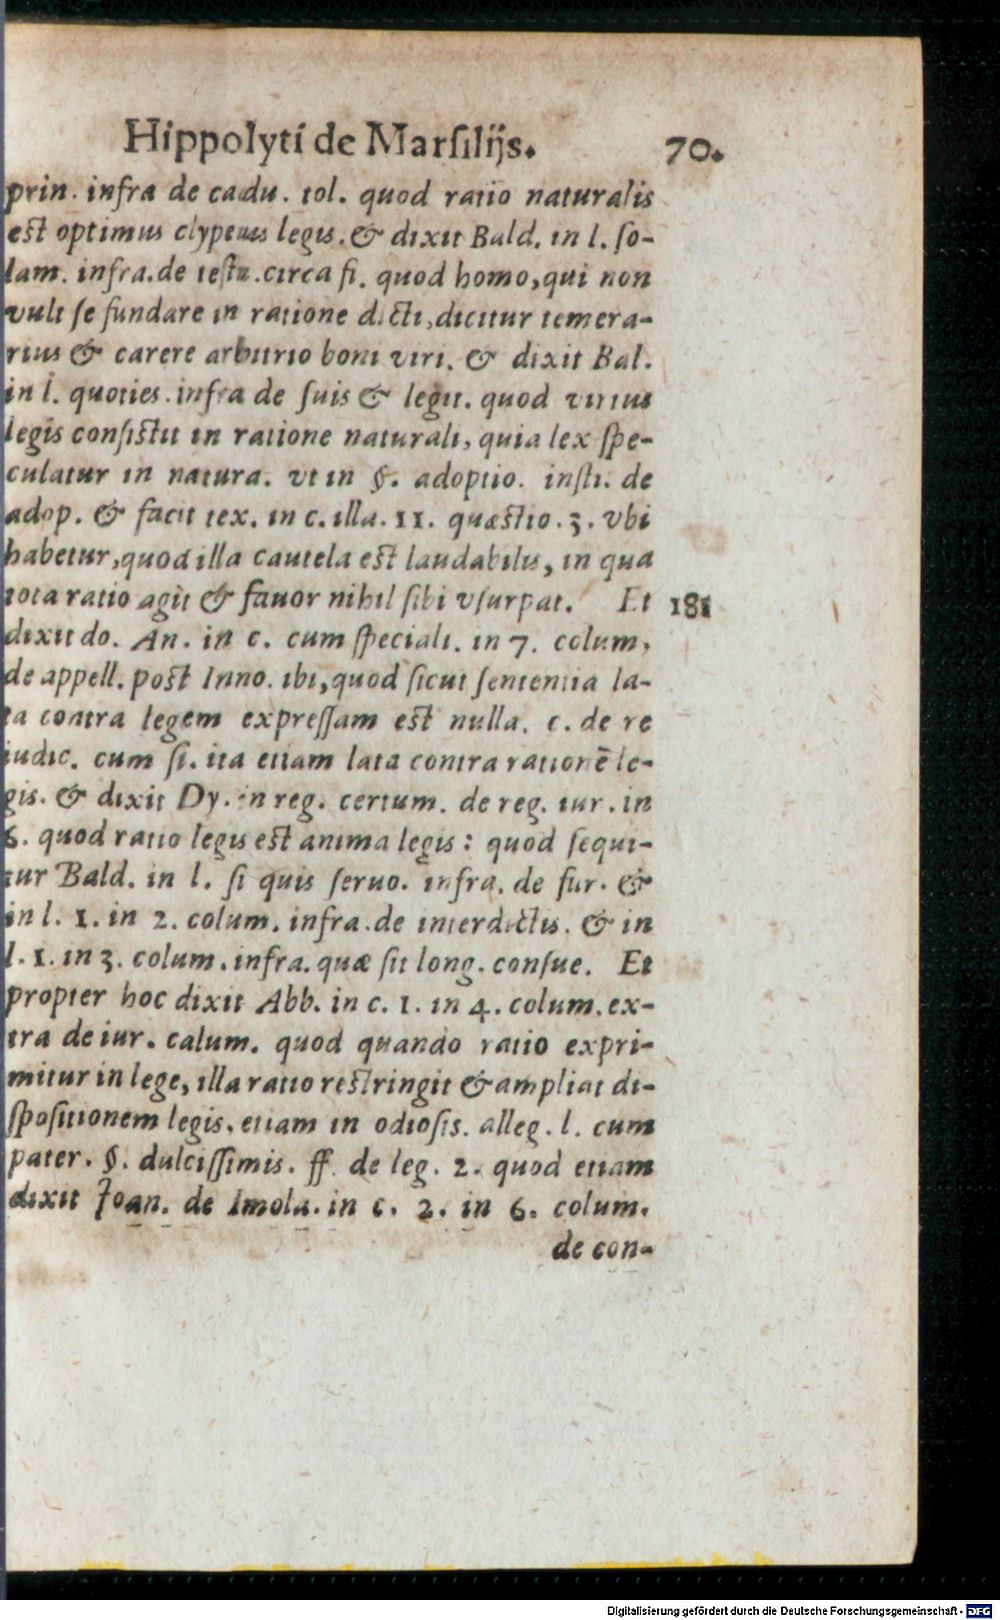 Hippolyti de Marſilijs. 70.
prin. infra de cadu. tol. quod ratio naturalis
eſt optimus clypeus legis. & dixit Bald. in l. ſo-
lam. infra. de teſta. circa fi. quod homo, qui non
vult ſe fundare in ratione dicti, dicitur temera-
rius & carere arbitrio boni viri. & dixit Bal.
in l. quoties. infra de ſuis & legit. quod virtus
legis conſiſtit in ratione naturali, quia lex ſpe-
culatur in natura. vt in §. adoptio. inſti. de
adop. & facit tex. in c. illa. 11. quæſtio. 3. vbi
habetur, quod illa cautela eſt laudabilis, in qua
tota ratio agit & fauor nihil ſibi vſurpat. Et 181
dixit do. An. in c. cum ſpeciali. in 7. colum,
de appell. poſt Inno. ibi, quod ſicut ſententia la-
ta contra legem expreſſam eſt nulla. c. de re
iudic. cum ſi. ita etiam lata contra rationē le-
gis. & dixit Dy. in reg. certum. de reg. iur. in
6. quod ratio legis eſt anima legis: quod ſequi-
tur Bald. in l. ſi quis ſeruo. infra. de fur. &
in l. 1. in 2. colum. infra. de interdictis. & in
l. 1. in 3. colum. infra. quæ ſit long. conſue. Et
propter hoc dixit Abb. in c. 1. in 4. colum. ex-
tra de iur. calum. quod quando ratio expri-
mitur in lege, illa ratio reſtringit & ampliat di-
ſpoſitionem legis. etiam in odioſis. alleg. l. cum
pater. §. dulciſſimis. ff. de leg. 2. quod etiam
dixit Joan. de Imola. in c. 2. in 6. colum.
de con-
Digitalisierung gefördert durch die Deutsche Forschungsgemeinschaft - DFG